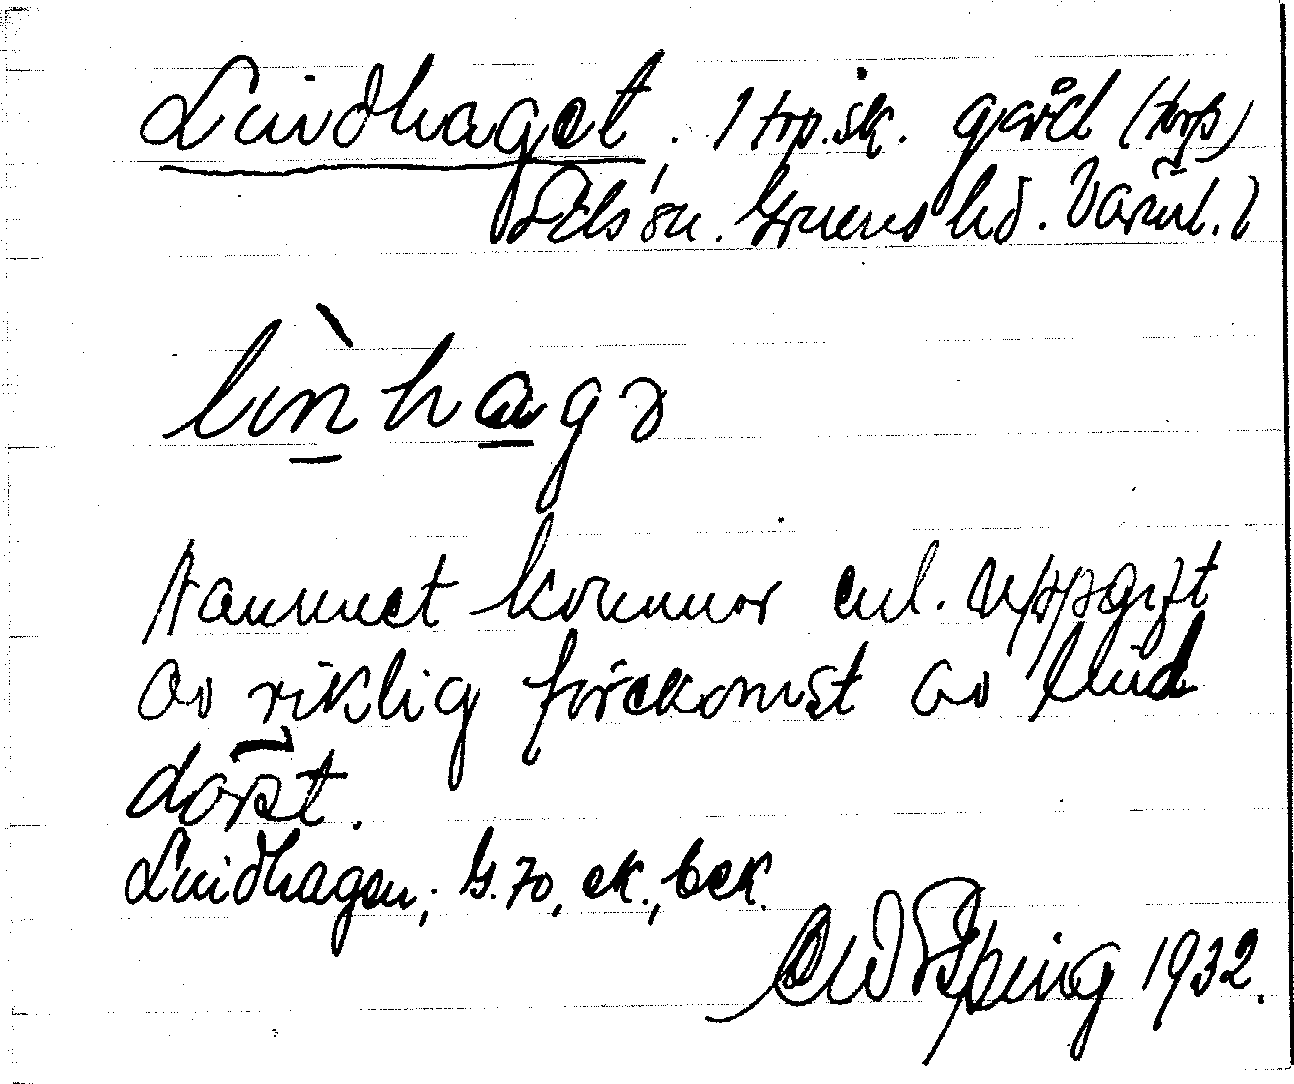 Lindhaget, 1 trp.sk. gård (torp)
Eds sn. Grums hd. Värml.
lìnhagə
Namnet kommer enl. uppgift
av riklig förekomst av lind
därst.
Lindhagen; G. 70, ek., bek.
1932.